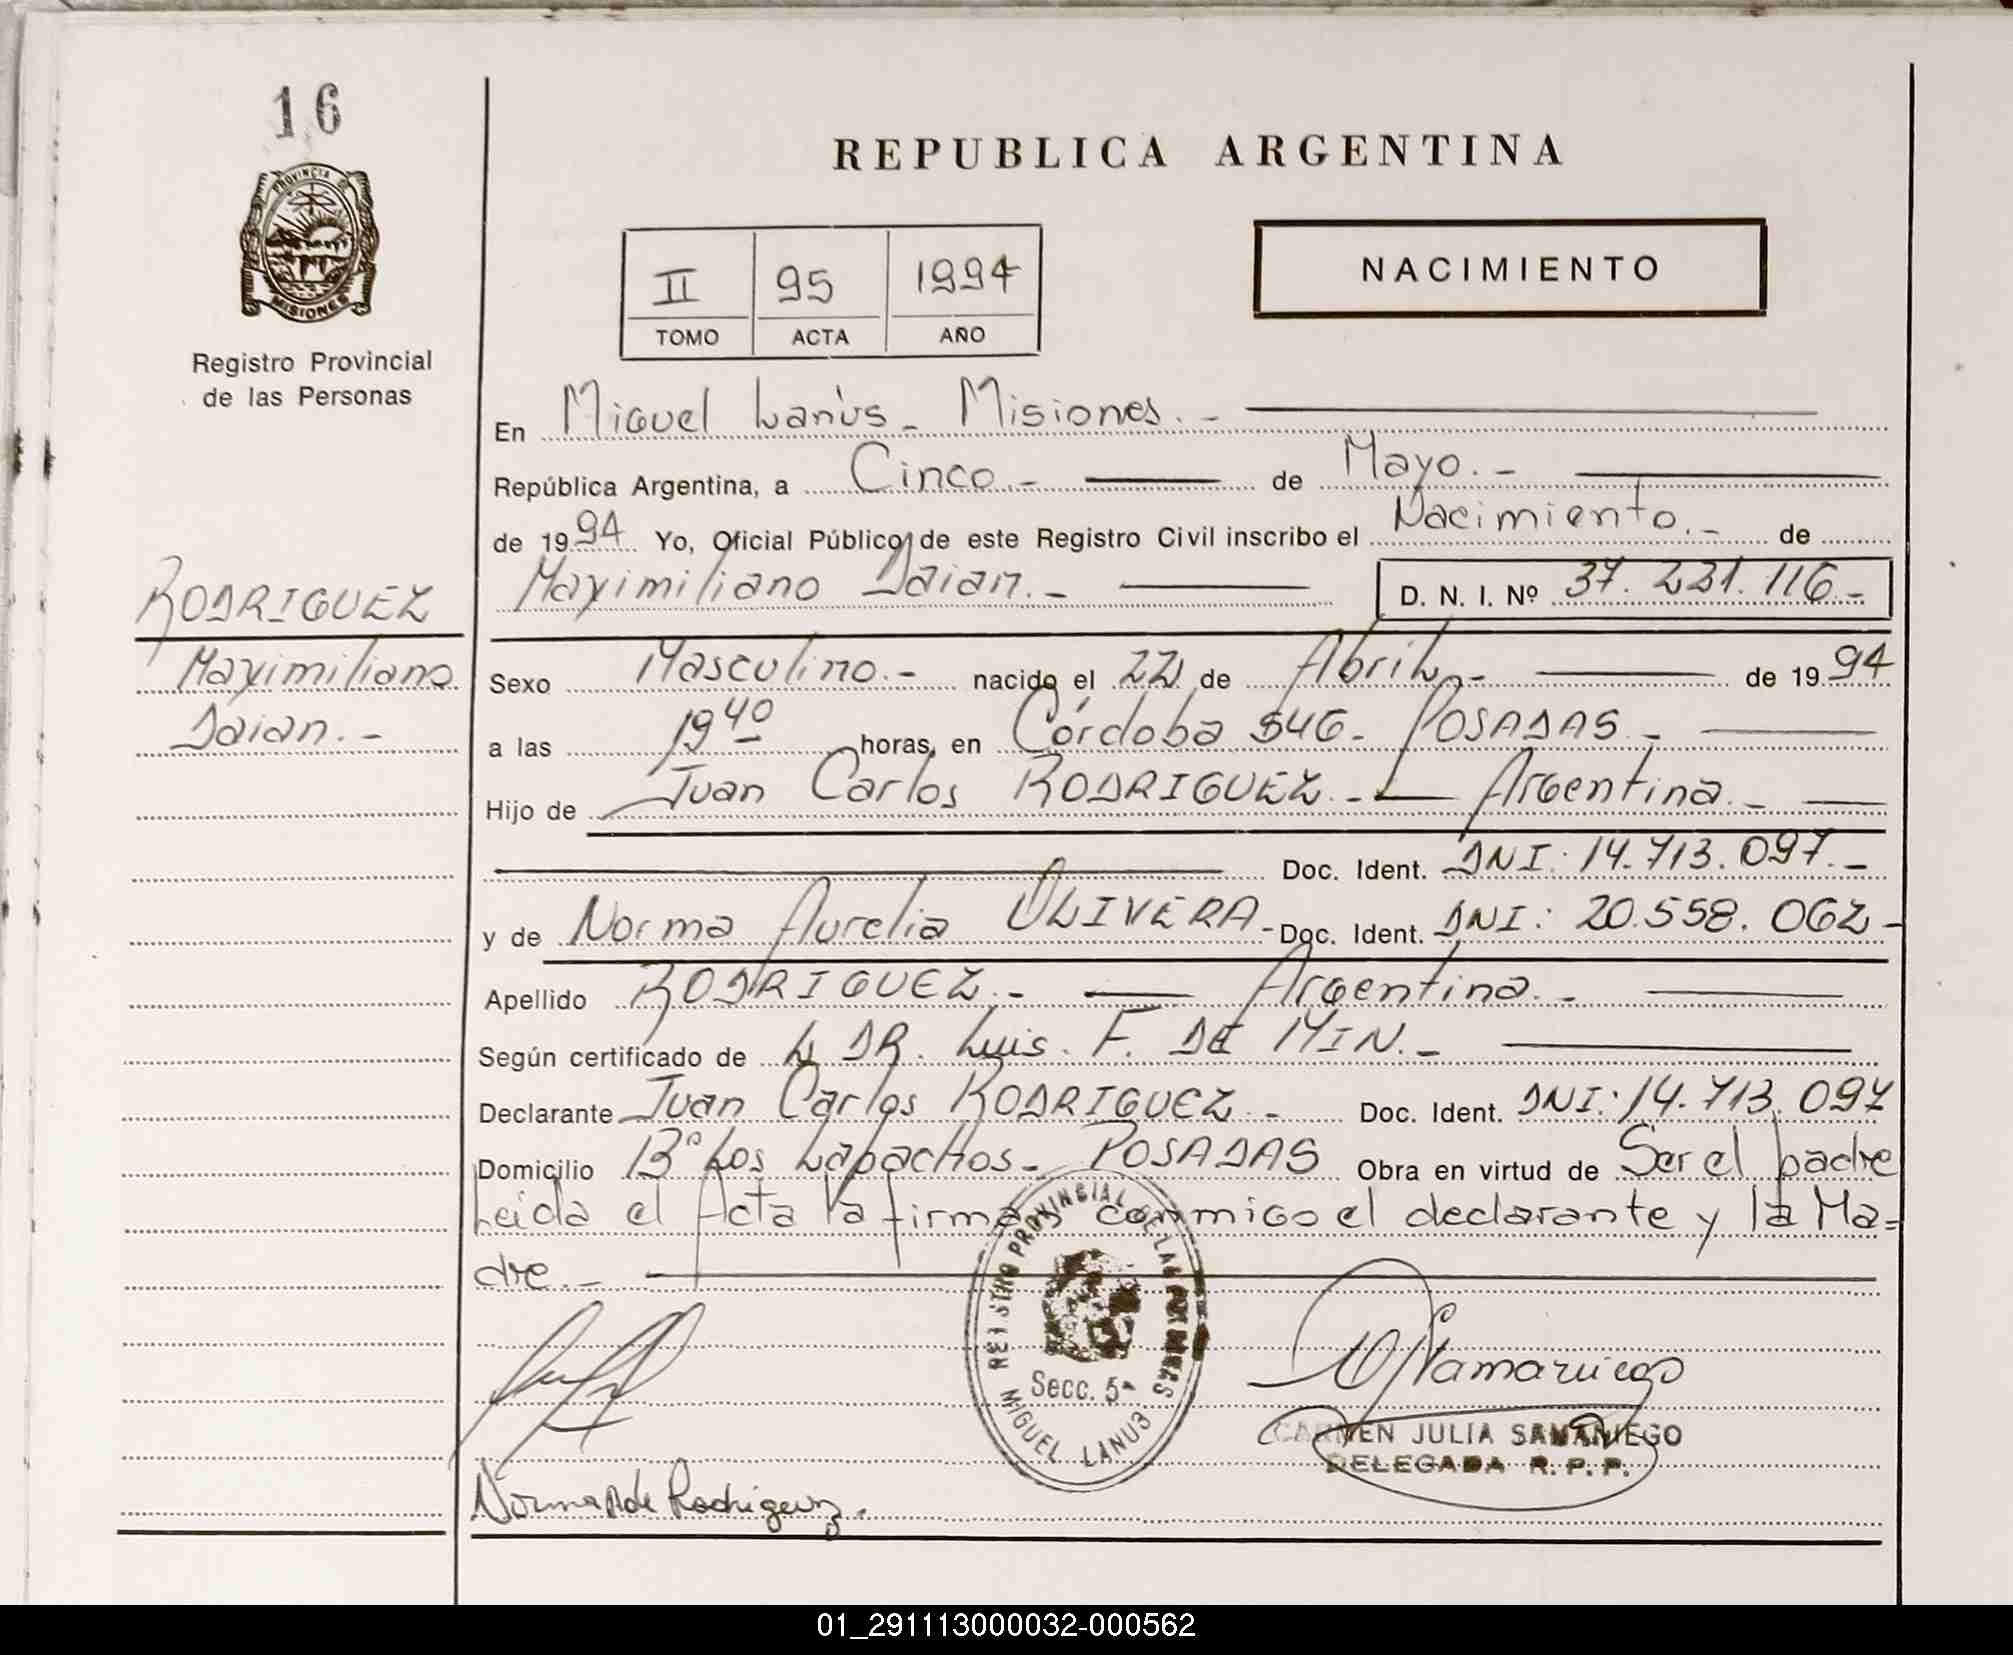 16
PROVINCIA DE
MISIONES
Registro Provincial
de las Personas
REPUBLICA ARGENTINA
II 95 1994
TOMO ACTA AÑO
NACIMIENTO
En Miguel Lanús - Misiones. -
República Argentina, a Cinco. - de Mayo. -
de 1994 Yo, Oficial Público de este Registro Civil inscribo el Nacimiento. - de
Maximiliano Daian. - D. N. I. Nº 37. 221. 116. -
RODRIGUEZ
Maximiliano
Daian. -
Sexo Masculino. - nacido el 22 de Abril. - de 1994
a las 19 40 horas, en Córdoba 546 - POSADAS. -
Hijo de Juan Carlos RODRIGUEZ. - Argentina. -
Doc. Ident. DNI: 14.713.097. -
y de Norma Aurelia OLIVERA - Doc. Ident. DNI: 20.558.062 -
Apellido RODRIGUEZ. - Argentina. -
Según certificado de DR. Luis. F. DE MIN. -
Declarante Juan Carlos RODRIGUEZ. - Doc. Ident. DNI: 14.713.097
Domicilio Bº Los Lapachos - POSADAS Obra en virtud de Ser el padre
Leida el Acta la firman conmigo el declarante y la Ma=
dre. -
REGISTRO PROVINCIAL DE LAS PERSONAS
Secc. 5ª
MIGUEL LANUS
CARMEN JULIA SAMANIEGO
DELEGADA R. P. P.
Norma de Rodriguez.
01_291113000032-000562